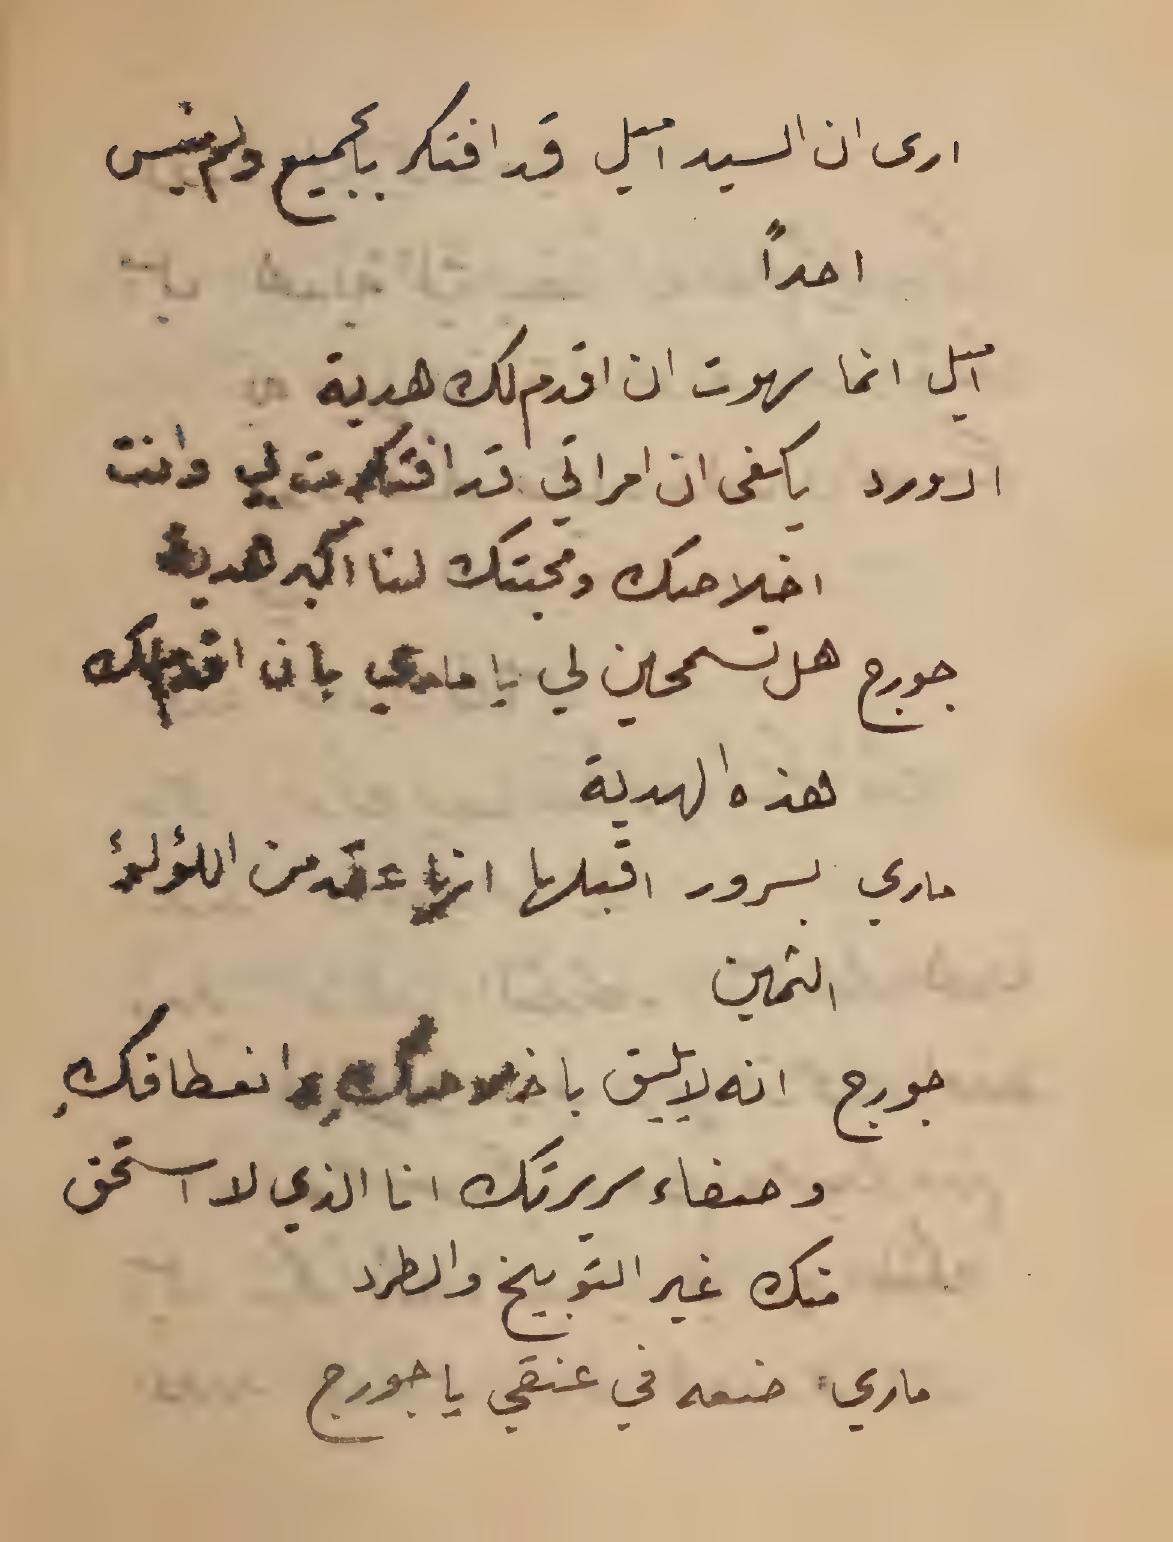 ارى ان السيد اميل قد افتكر بالجميع ولم ينس
احداً
اميل انما سهوت ان اقدم لك هدية
ادورد يكفى ان امراتي قد افتكرت لي وانت
اخلاصك ومحبتك لنا اكبر هدية
جورج هل تسمحين لي يا ماري بان اقدم لك
هذه الهدية
ماري بسرور اقبلها انها عقد من اللؤلؤ
الثمين
جورج انه لا يليق باخلاصكِ وانعطافكِ
وصفاء سريرتك انا الذي لا استحق
منك غير التوبيخ والطرد
ماري: ضعه في عنقي يا جورج